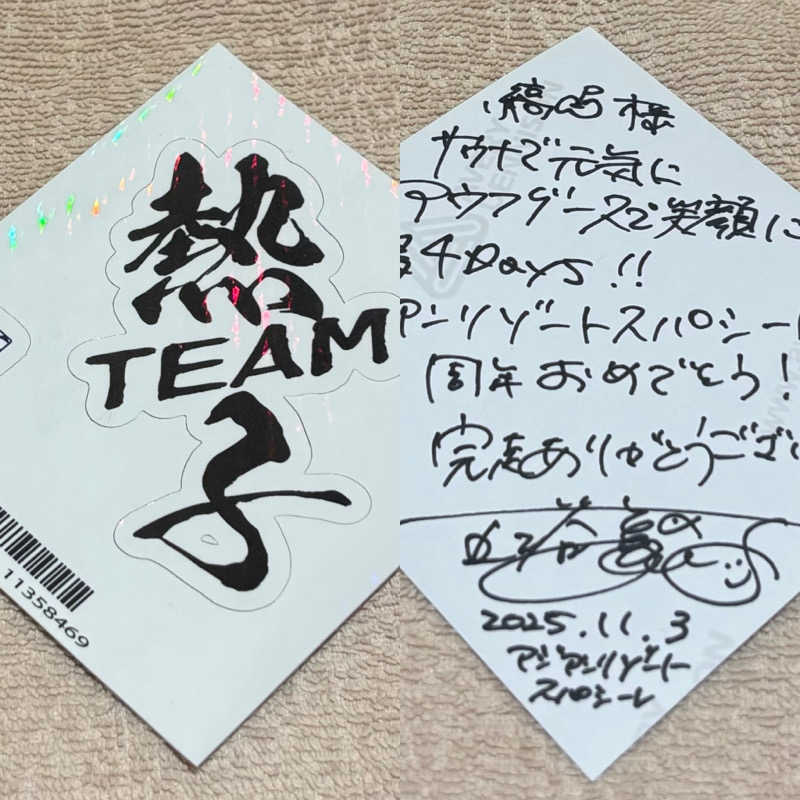 熱
TEAM
子
11358469
様
サウナで元気に
アウフグースで笑顔に
4Days!!
アンリゾートスパシー
周年おめでとう!
完走ありがとうござい
2025.11.3
アジアンリゾート
スパシーレ